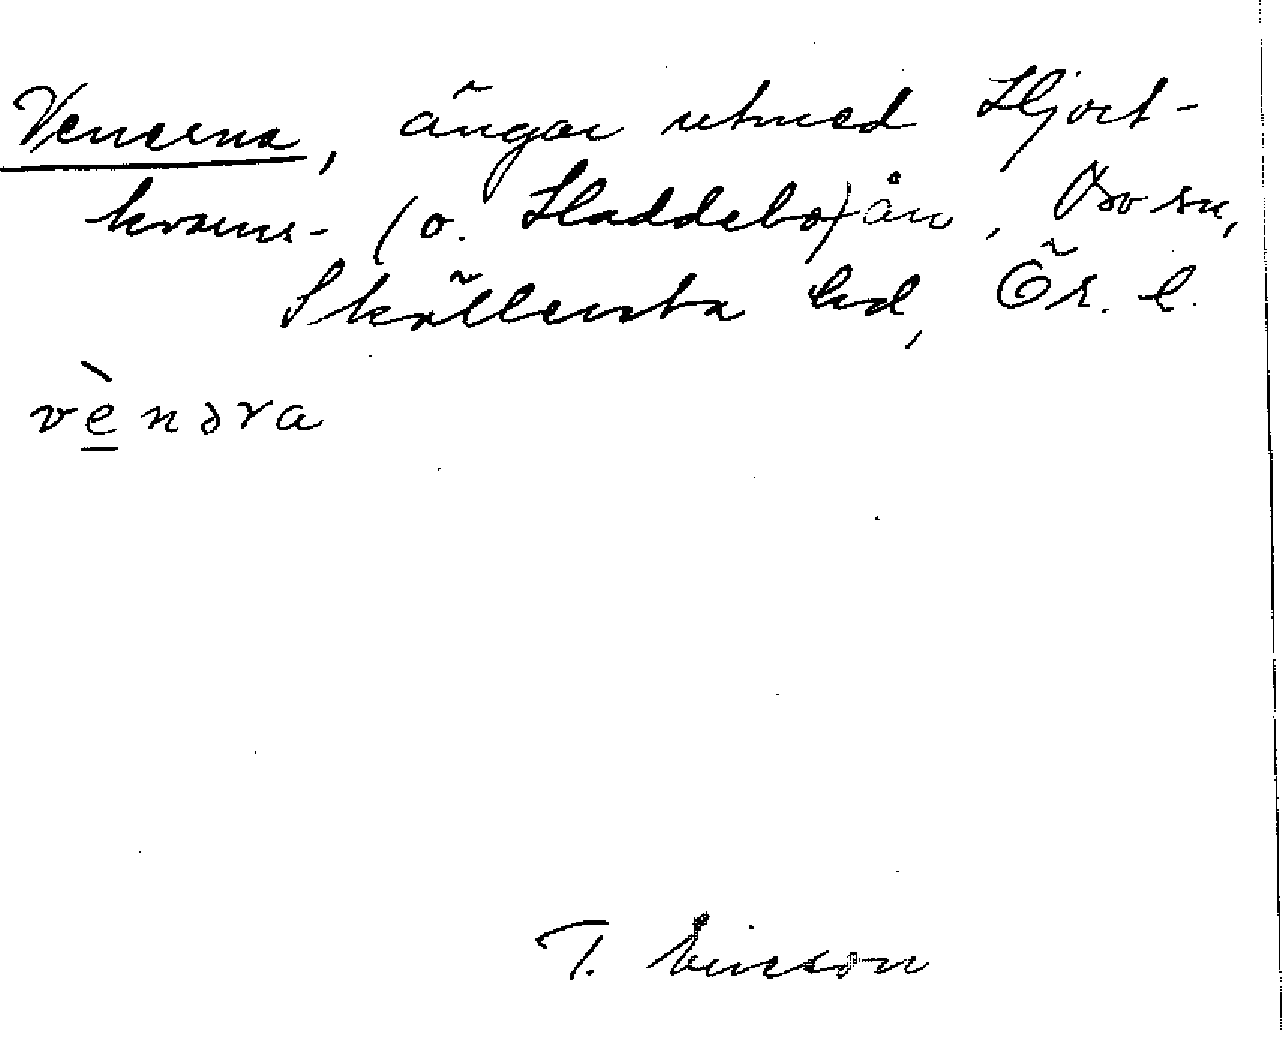 Venerna, ängar utmed Hjort-
kvarns- (o. Haddebo)ån, Bo sn,
Skyllersta hd, Ör. l.
vènəra
T. Ericson